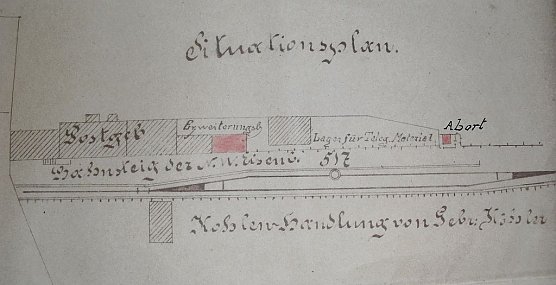 Situationsplan.
Postgeb
Erweiterungsb.
Lager für Teleg. Material
Abort
Bahnsteig der N. N. Eisenb. 517
Kohlen-Handlung von Gebr.